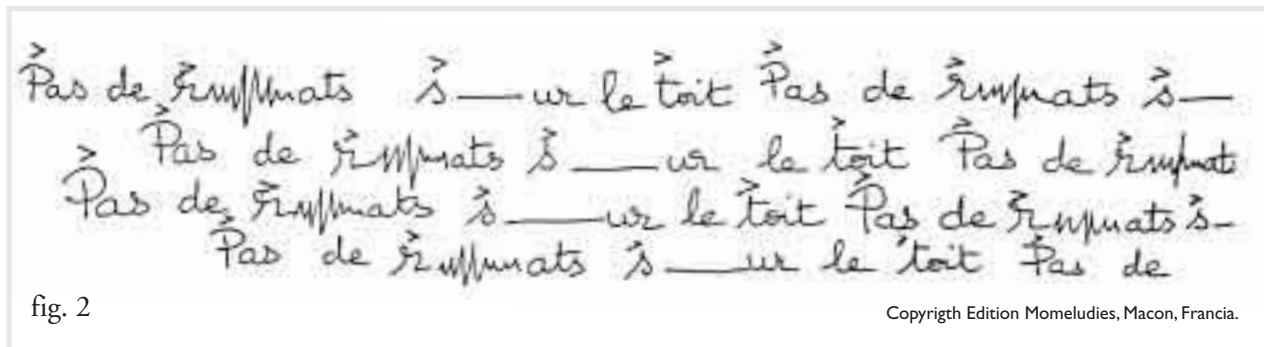 Pas de rats s—ur le toit Pas de rats s—
Pas de rats s—ur le toit Pas de rats
Pas de rats s—ur le toit Pas de rats s-
Pas de rats s—ur le toit Pas de
fig. 2
Copyrigth Edition Momeludies, Macon, Francia.